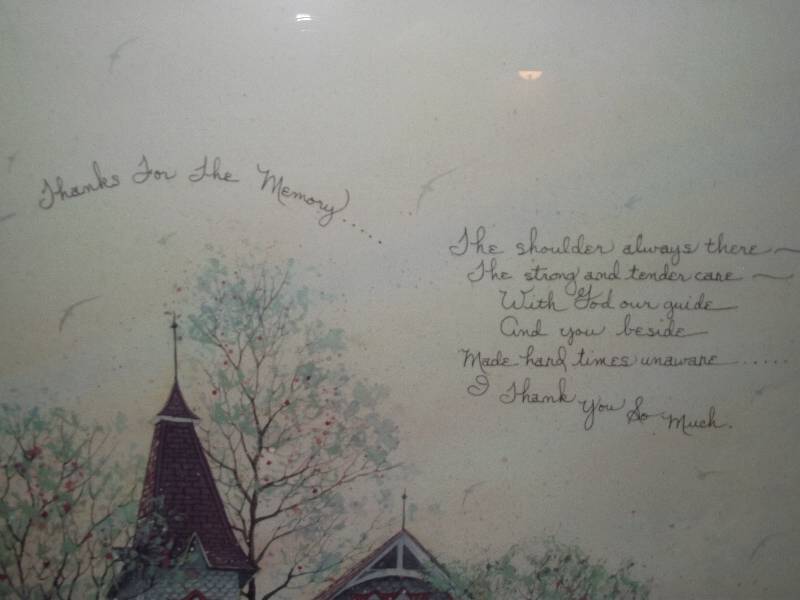 Thanks For The Memory.....
The shoulder always there ~
The strong and tender care ~
With God our guide
And you beside
Made hard times unaware.....
I Thank You So Much.